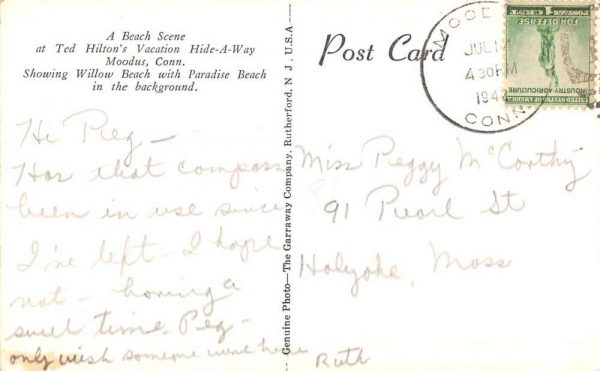 A Beach Scene
at Ted Hilton's Vacation Hide-A-Way
Moodus, Conn.
Showing Willow Beach with Paradise Beach
in the background.
Post Card
MOODUS
JUL 14
4 30 PM
194
CONN.
1 CENT 1
POSTAGE
FOR DEFENSE
INDUSTRY AGRICULTURE
UNITED STATES OF AMERICA
Genuine Photo—The Garraway Company, Rutherford, N. J., U.S.A.
Hi Peg—
Has that compass
been in use since
I've left - I hope
not - having a
swell time Peg-
only wish someone were here
Ruth
Miss Peggy McCarthy
91 Pearl St
Holyoke, Mass